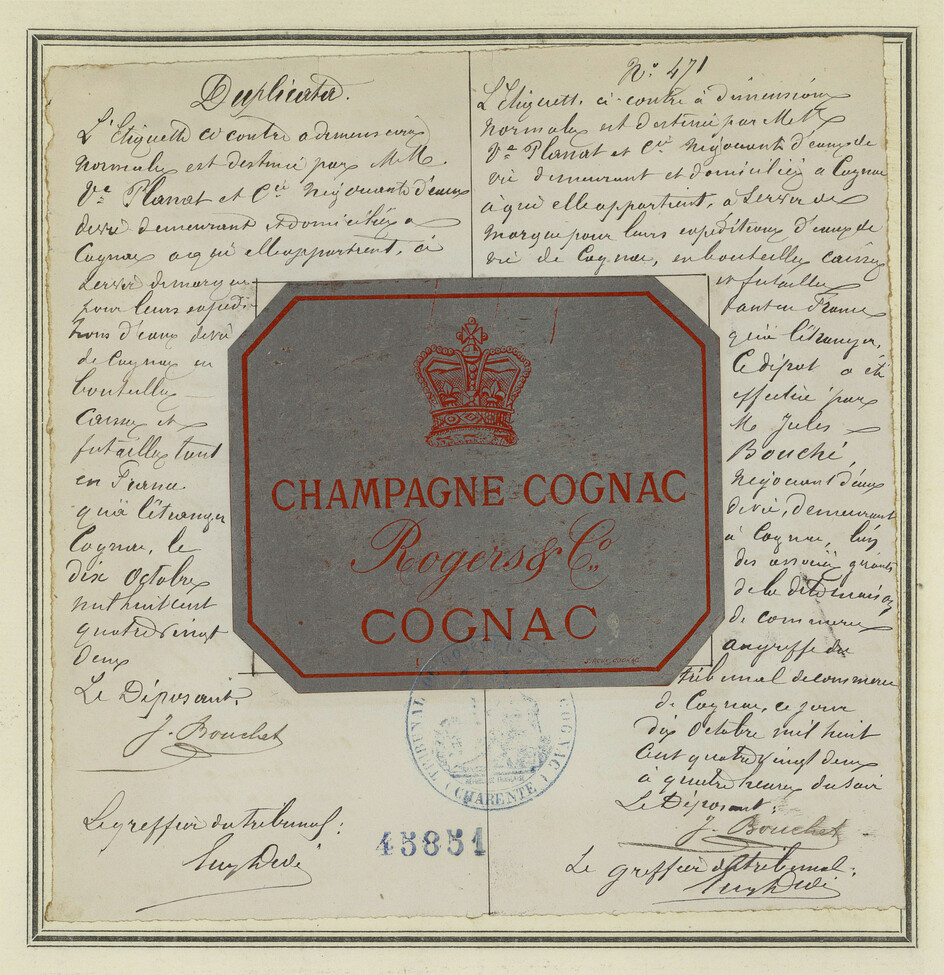 Duplicata.
L'Etiquette ci contre a dimensions
normales est destinée par M.M.
Ve Planat et Cie Négociants d'eaux
devie demeurant et domiciliés a
Cognac a qui elle appartient, à
servir de marque
pour leurs expédi-
tions d'eaux devie
de Cognac en
bouteilles
caisses et
futailles tant
en France
qu'à l'étranger
Cognac, le
dix Octobre
mil huit cent
quatre vingt
deux
Le Déposant,
J. Bouchet
Le greffier du tribunal:
No 471
L'Etiquette ci-contre à dimensions
normales est destinée par M.M.
Ve Planat et Cie Négociants d'eaux de
vie demeurant et domiciliés à Cognac
à qui elle appartient, à servir de
marque pour leurs expéditions d'eaux de
vie de Cognac, en bouteilles caisses
et futailles
tant en France
qu'à l'étranger,
Ce dépot a été
effectué par
M. Jules
Bouché
négociant d'eaux
de vie, demeurant
à Cognac, l'un
des associés gérants
de la dite maison
de commerce
au greffe du
tribunal de commerce
de Cognac, ce jour
dix Octobre mil huit
cent quatre vingt deux
à quatre heures du soir
Le Déposant:
J. Bouchet
Le greffier du tribunal:
CHAMPAGNE COGNAC
Rogers & Co.
COGNAC
TRIBUNAL DE COMMERCE COGNAC
REPUBLIQUE FRANÇAISE
(CHARENTE)
45851